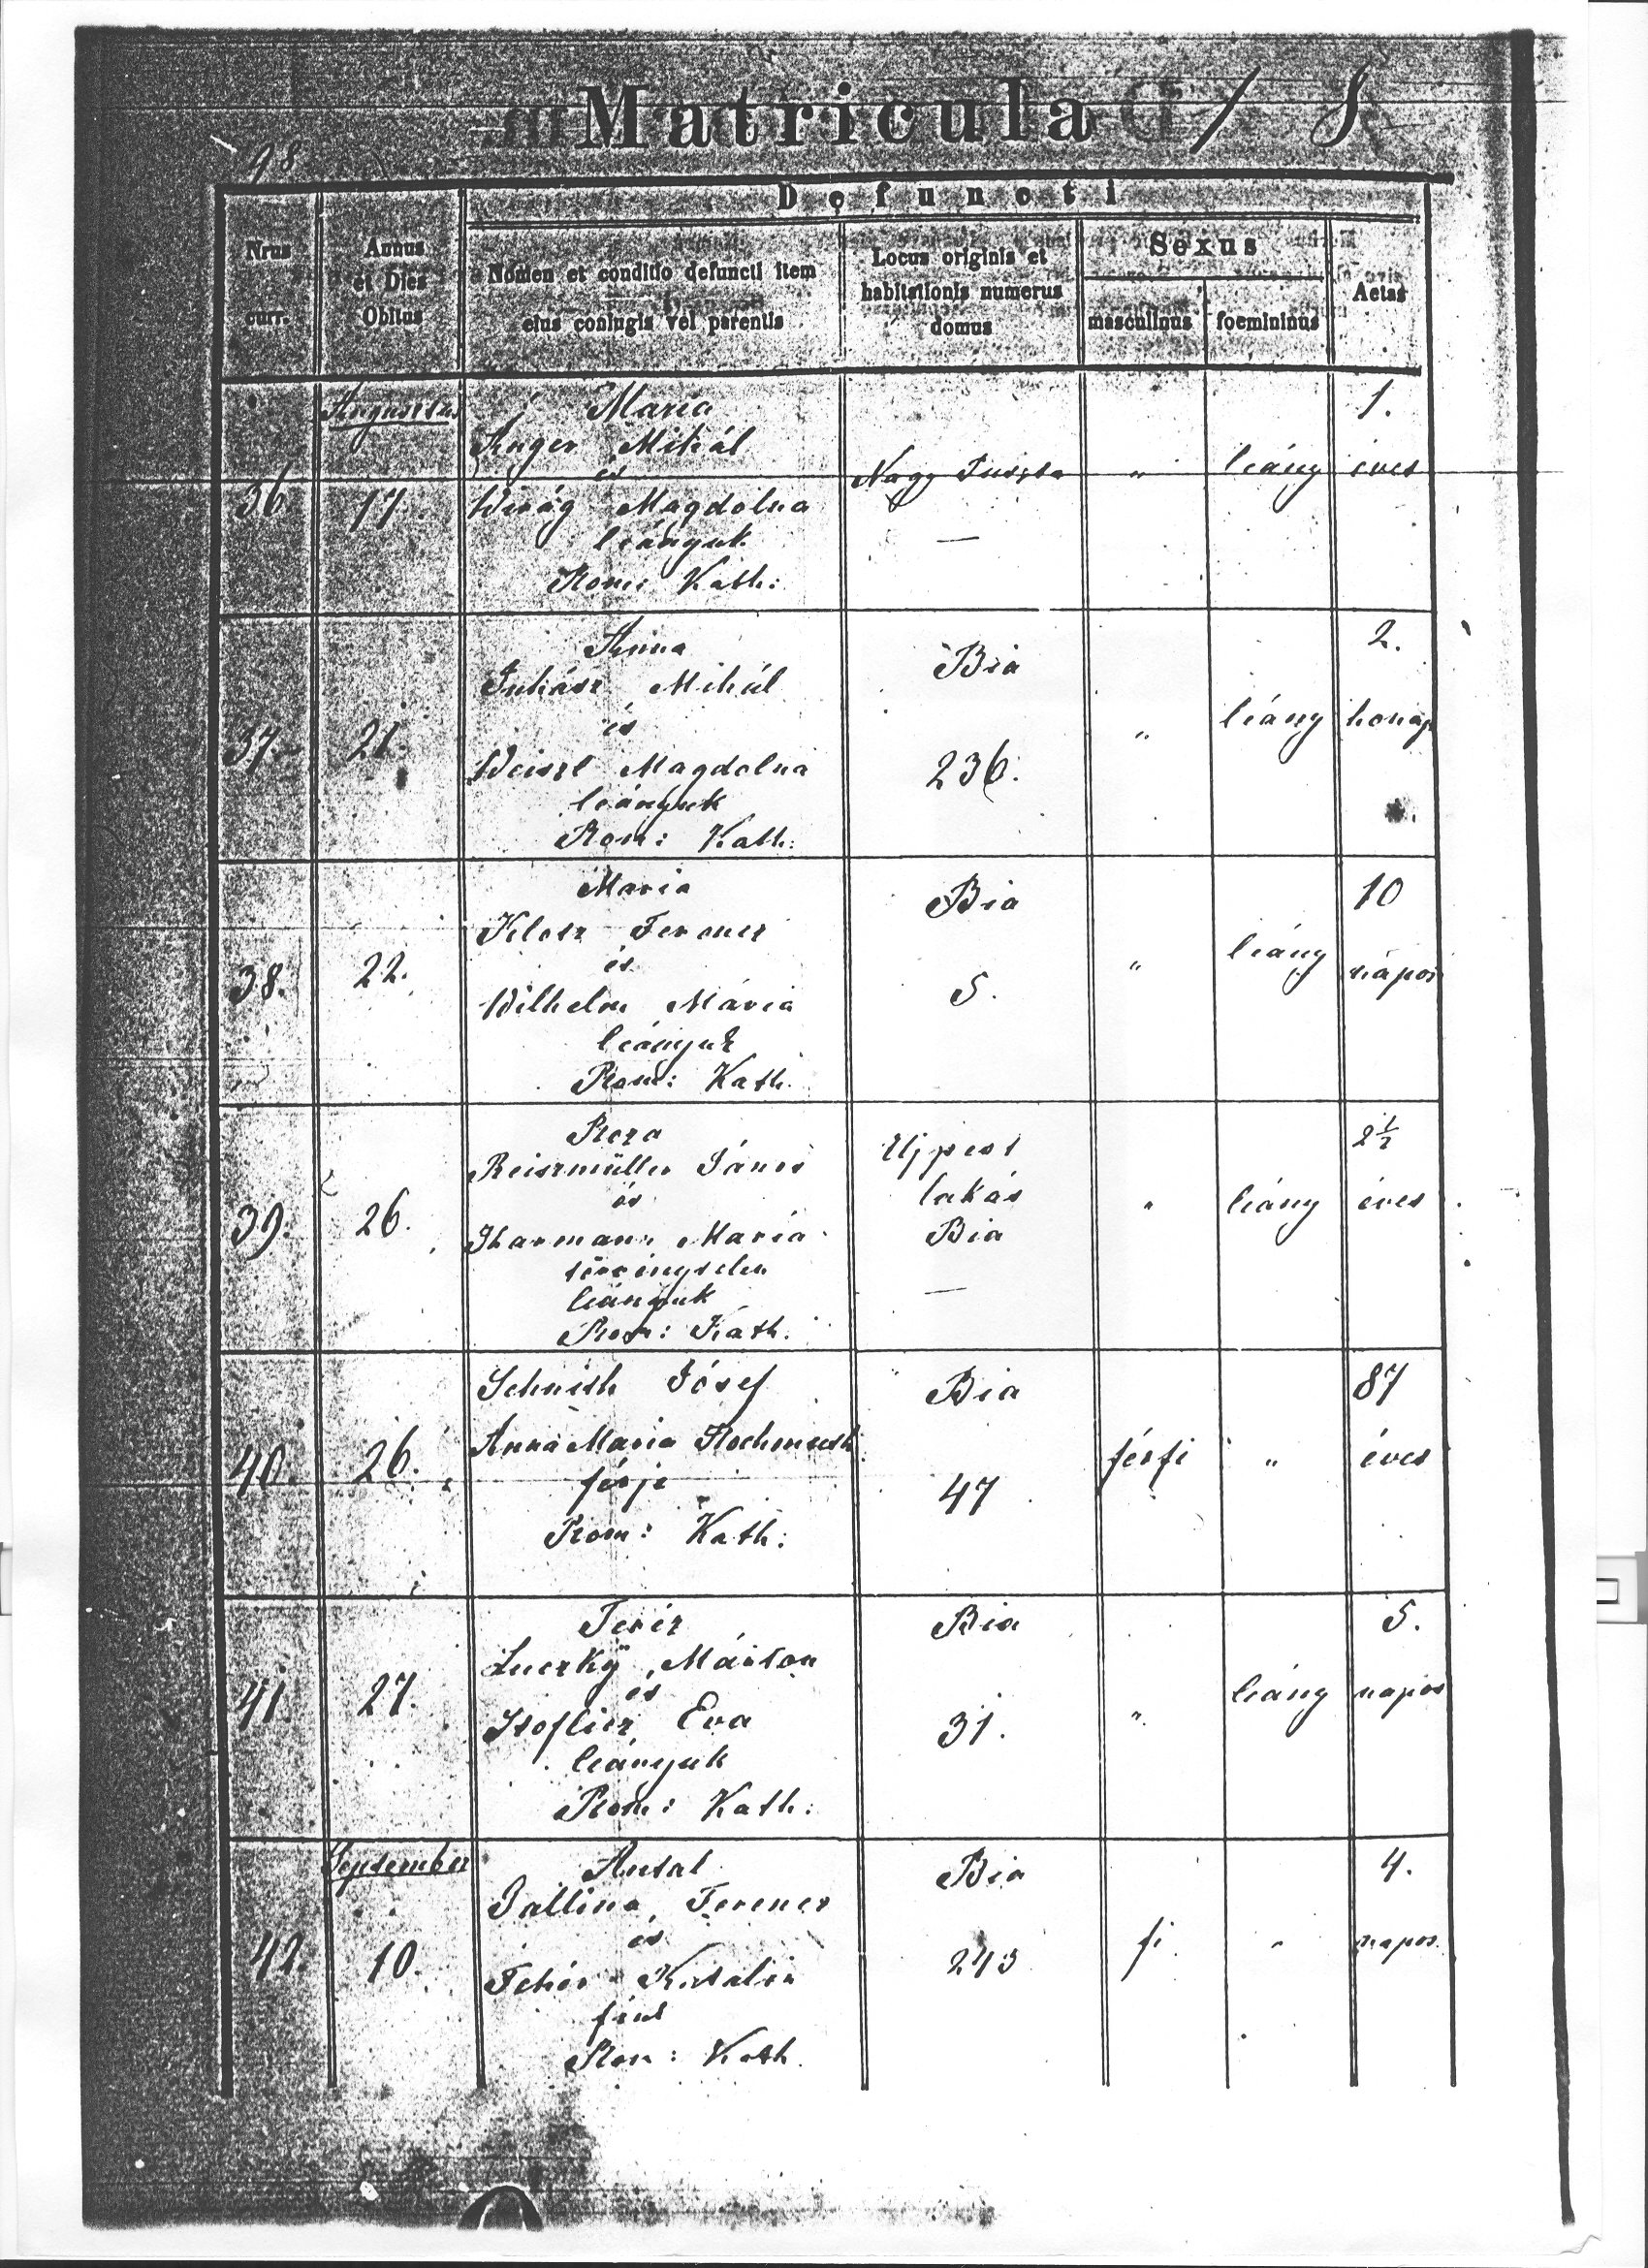 Matricula
98
Defuncti
Nrus
curr.
Annus
et Dies
Obitus
Nomen et conditio defuncti item
eius coniugis vel parentis
Locus originis et
habitationis numerus
domus
Sexus
masculinus
foemininus
Aetas
36
Augustus
17.
Maria
Anger Mihál
és
Virág Magdolna
leányuk
Rom: Kath:
Nagy Puszta
—
"
leány
1.
éves
37.
21.
Anna
Juhász Mihál
és
Weiszl Magdolna
leányuk
Rom: Kath:
Bia
236.
"
leány
2.
honap
38.
22.
Maria
Klosz Ferencz
és
Wilhelm Mária
leányuk
Rom: Kath.
Bia
5.
"
leány
10
nápos
39.
26.
Roza
Reiszmüller János
és
Mária
leányuk
Rom: Kath.
Ujpest
lakás
Bia
—
"
leány
2 1/2
éves
40.
26.
József
Anna Maria
férje
Rom: Kath:
Bia
47
férfi
"
87
éves
41.
27.
Teréz
Luczkÿ Márton
és
Eva
leányuk
Rom: Kath:
Bia
31.
"
leány
5.
napos
42.
September
10.
Antal
Ferencz
és
Fehér Katalin
fiuk
Rom: Kath.
Bia
243
fi
"
4.
napos.